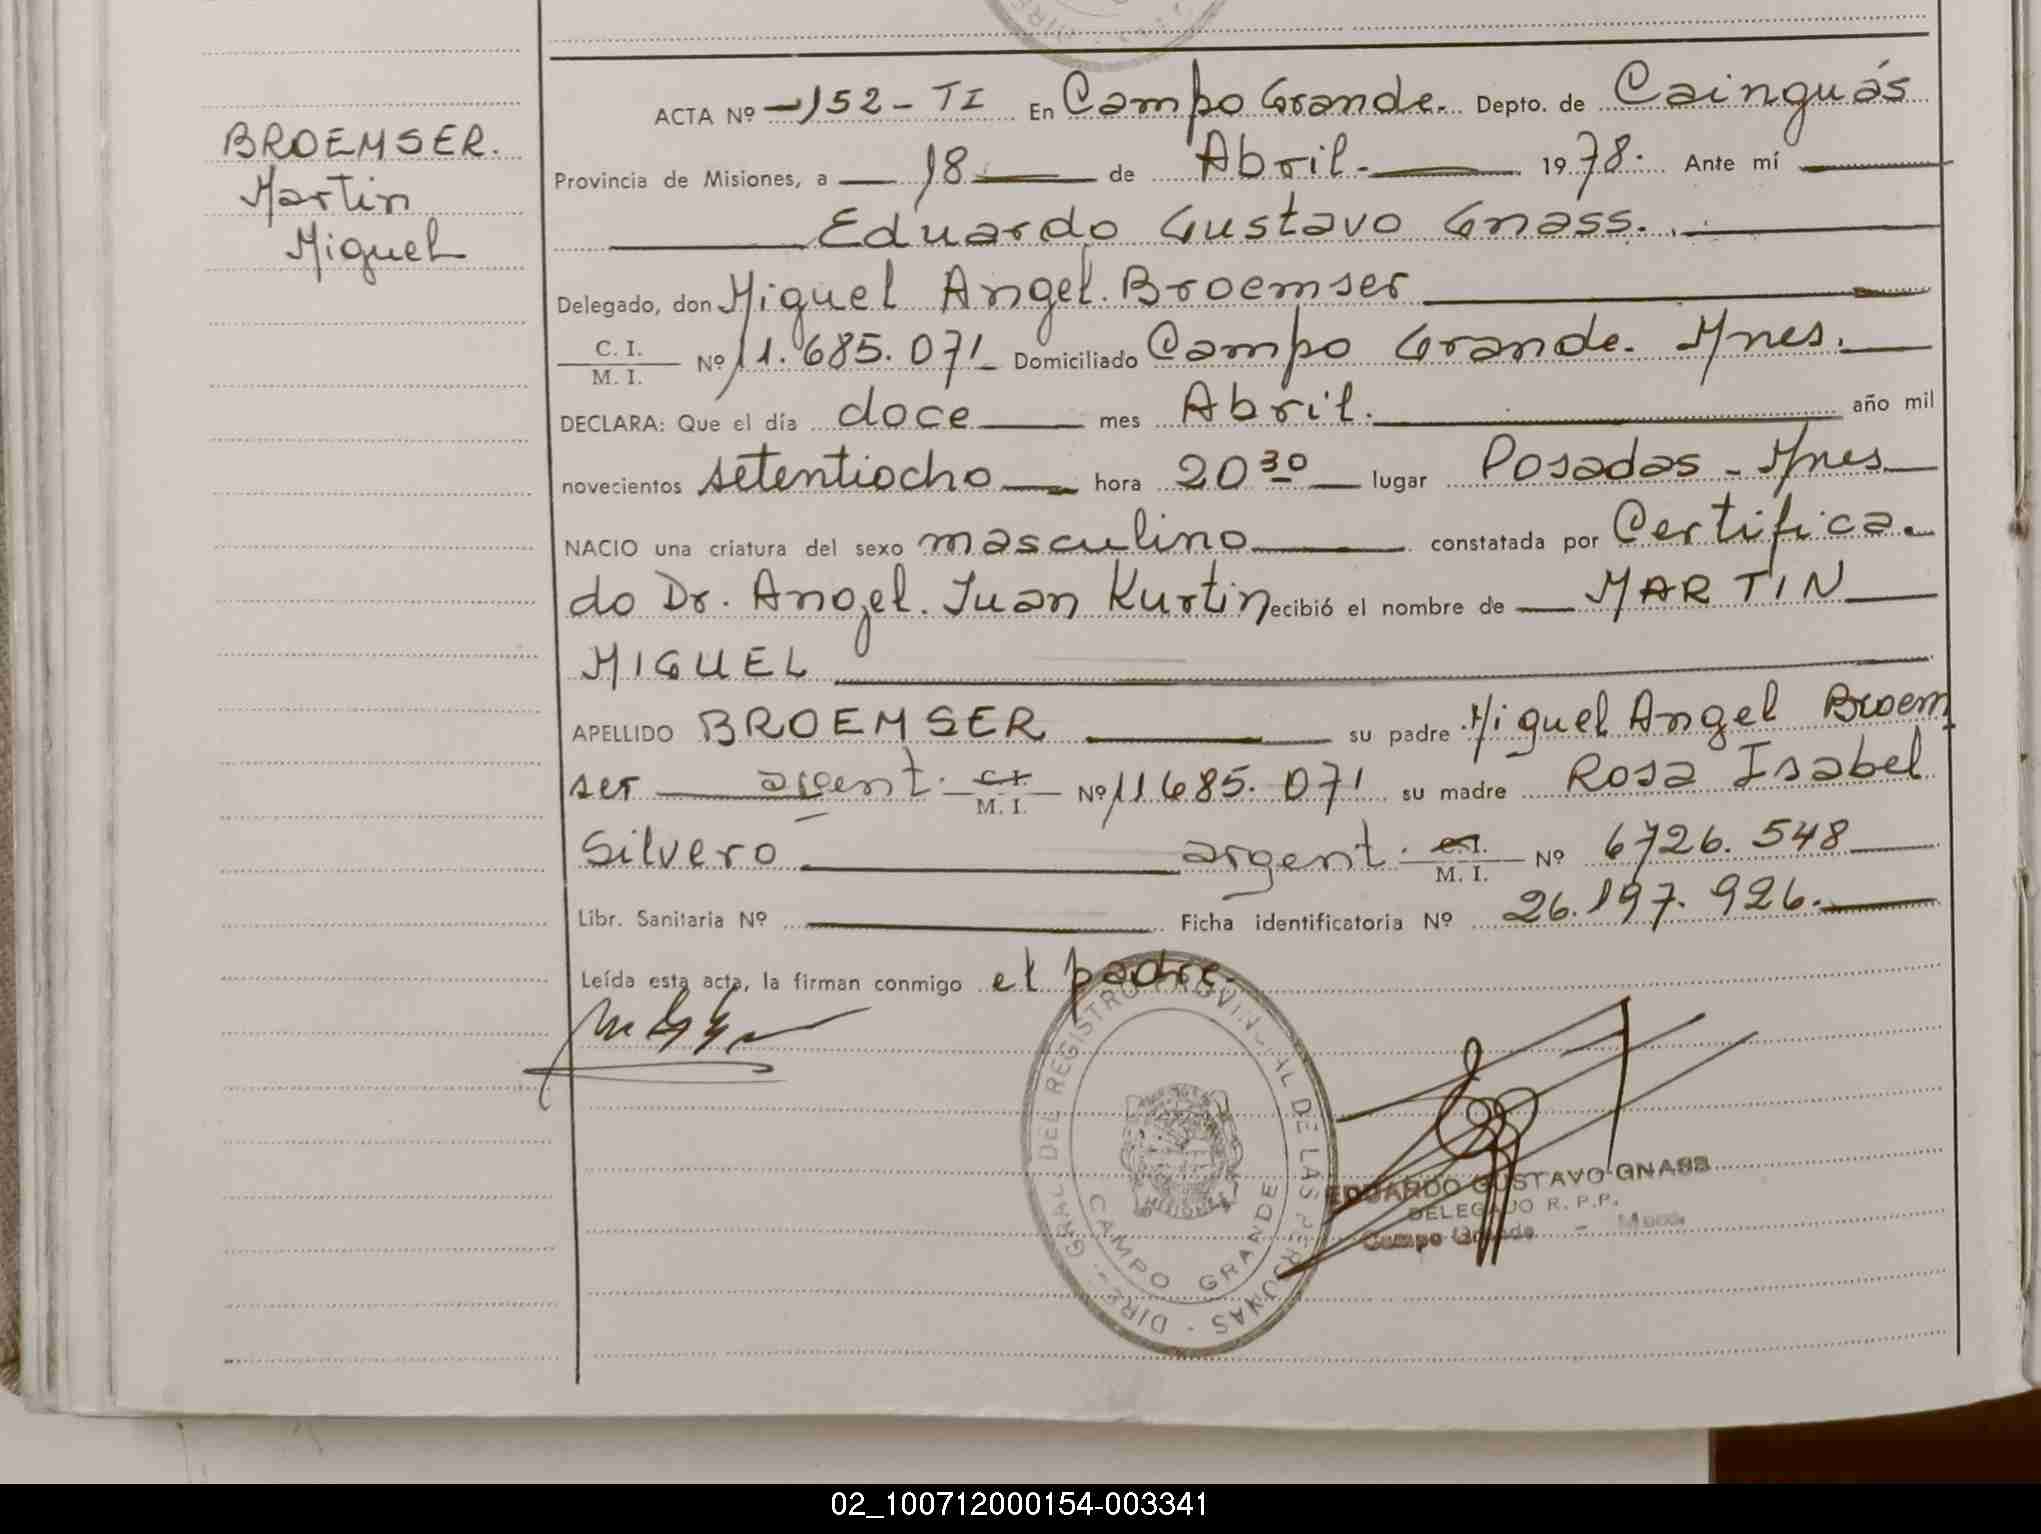 BROEMSER.
Martin
Miguel
ACTA Nº 152 - TI En Campo Grande. Depto. de Cainguás
Provincia de Misiones, a 18 de Abril. 1978. Ante mí
Eduardo Gustavo Gnass.
Delegado, don Miguel Angel. Broemser
C. I.
M. I. Nº 11.685.071 Domiciliado Campo Grande. Mnes.
DECLARA: Que el día doce mes Abril. año mil
novecientos setentiocho hora 20 30 lugar Posadas - Mnes
NACIO una criatura del sexo masculino constatada por Certifica
do Dr. Angel. Juan Kurtin recibió el nombre de MARTIN
MIGUEL
APELLIDO BROEMSER su padre Miguel Angel Broem
ser argent. C.I. M. I. Nº 11685.071 su madre Rosa Isabel
Silvero argent. C.I. M. I. Nº 6726.548
Libr. Sanitaria Nº Ficha identificatoria Nº 26.197.926.
Leída esta acta, la firman conmigo el padre.
DIREC. GRAL. DEL REGISTRO PROVINCIAL DE LAS PERSONAS
CAMPO GRANDE
MISIONES
EDUARDO GUSTAVO GNASS
DELEGADO R. P. P.
Campo Grande - Mnes.
02_100712000154-003341